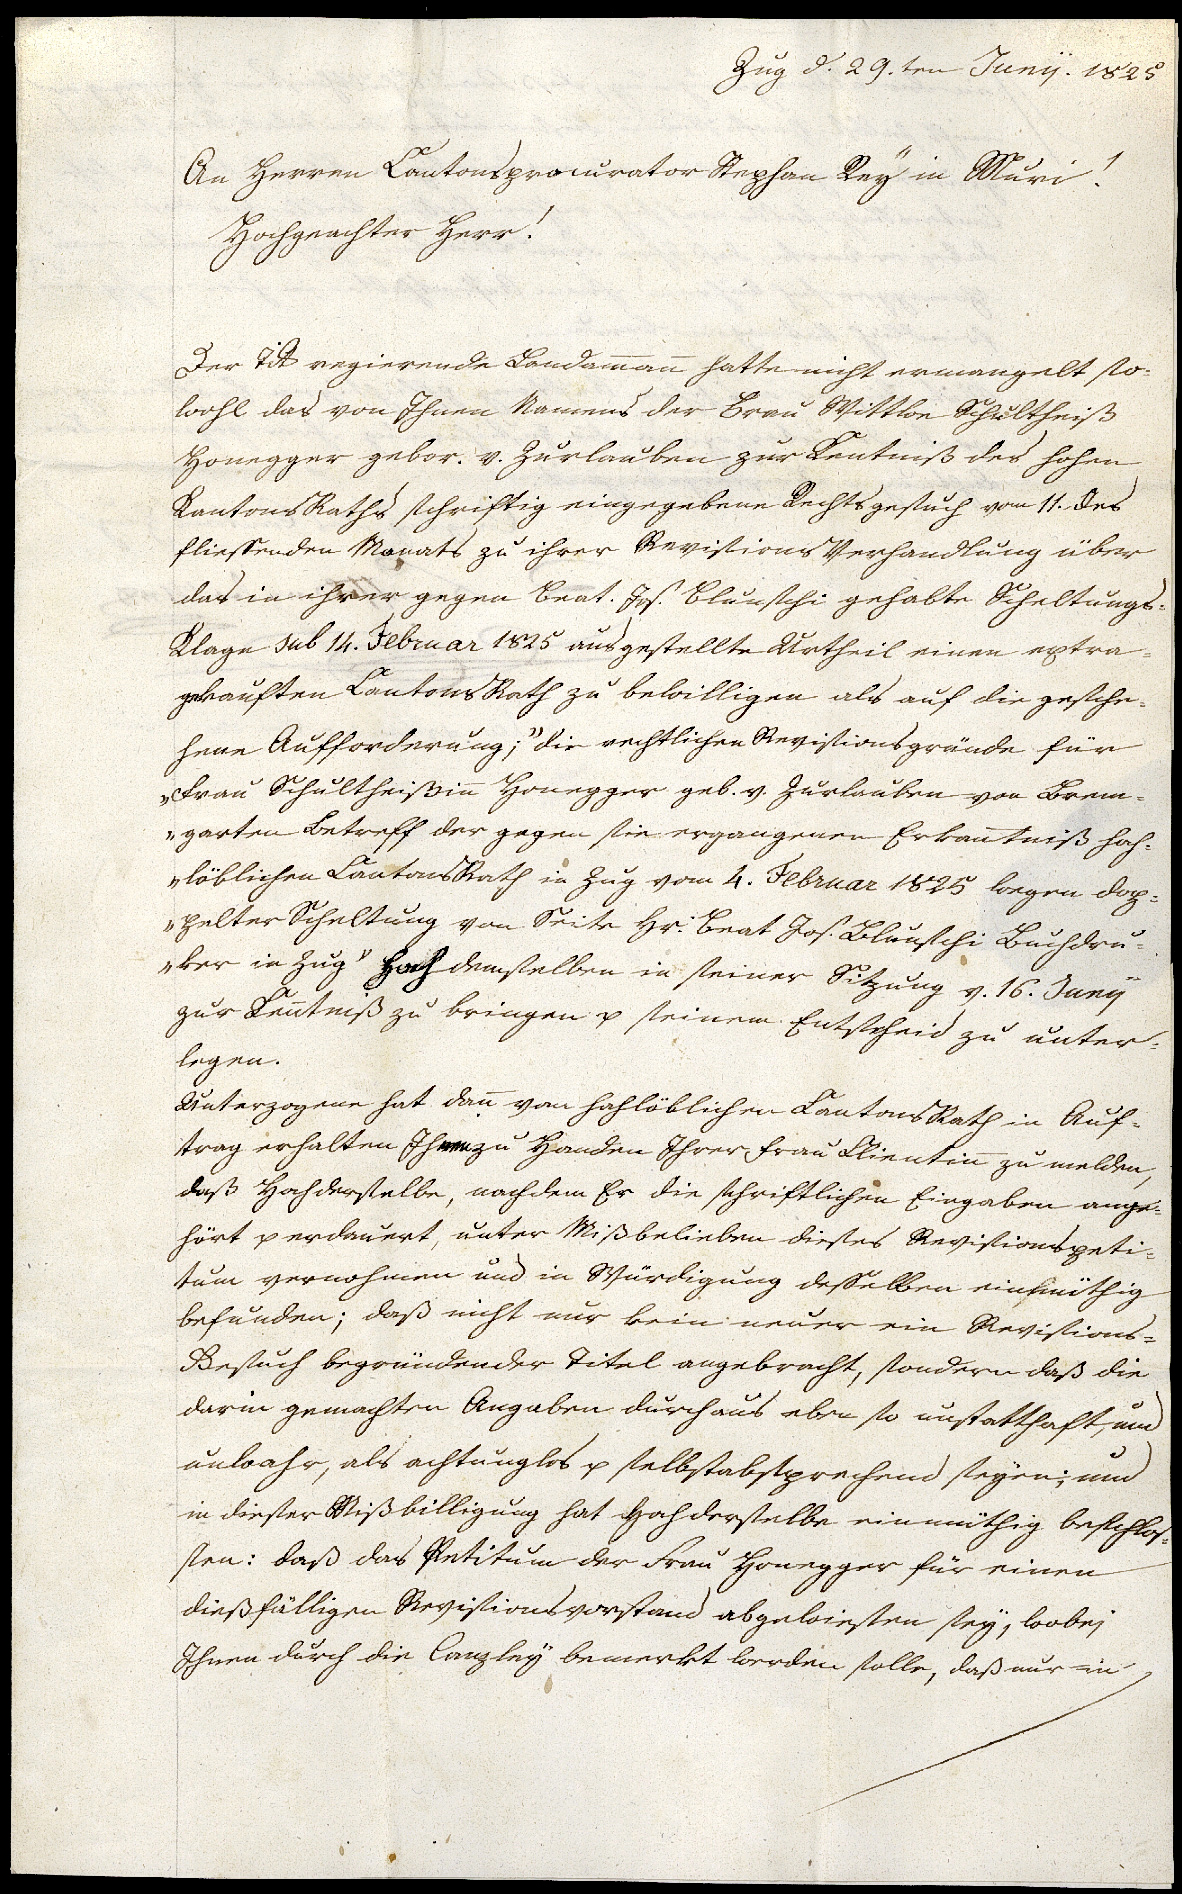 Zug d. 29.ten Junÿ. 1825
An Herren Cantonsprocurator Stephan Reÿ in Muri!
Hochgeachter Herr!
Der Tit regierende Landam̄an̄ hatte nicht ermangelt so-
wohl das von Ihnen Namens der Frau Wittwe Schultheiß
Honegger gebor. v. Zurlauben zur Kentniß des hohen
KantonsRaths schriftig eingegebene Rechtsgesuch vom 11. des
fliessenden Monats zu ihrer RevisionsVerhandlung über
das in ihrer gegen Beat. Jos. Blunschi gehabte Scheltungs-
Klage sub 14. Februar 1825 ausgestellte Urtheil einen extra-
gekauften CantonsRath zu bewilligen als auf die gesche-
hene Aufforderung; "die rechtlichen Revisionsgründe für
"Frau Schultheißin̄ Honegger geb. v. Zurlauben von Brem-
"garten Betreff der gegen sie ergangenen Erkan̄tniß hoh-
"löblichen CantonsRath in Zug vom 4. Februar 1825 wegen dop-
"pelter Scheltung von Seite Hr. Beat Jos. Blunschi Buchdru-
"ker in Zug" Hoch demselben in seiner Sitzung v. 16. Junÿ
zur Ken̄tniß zu bringen & seinem Entscheid zu unter-
legen.
Unterzogene hat dan̄ vom hohlöblichen CantonsRath in Auf-
trag erhalten Ihnen zu Handen Ihrer Frau Clientin̄ zu melden,
daß Hochderselbe, nachdem Er die schriftlichen Eingaben ange-
hört & erdauert, unter Mißbelieben dieses Revisionspeti-
tum vernohmen und in Würdigung desselben einmüthig
befunden; daß nicht nur kein neuer ein Revisions-
Gesuch begründender Titel angebracht, sondern daß die
darin gemachten Angaben durchaus eben so unstatthaft, und
unwahr, als achtunglos & selbstabsprechend seyen; und
in dieser Mißbilligung hat Hochderselbe einmüthig beschlos-
sen: daß das Petitum der Frau Honegger für einen
dießfälligen Revisionsvorstand abgewiesen seÿ, wobej
Ihnen durch die Canzleÿ bemerkt werden solle, daß nur in